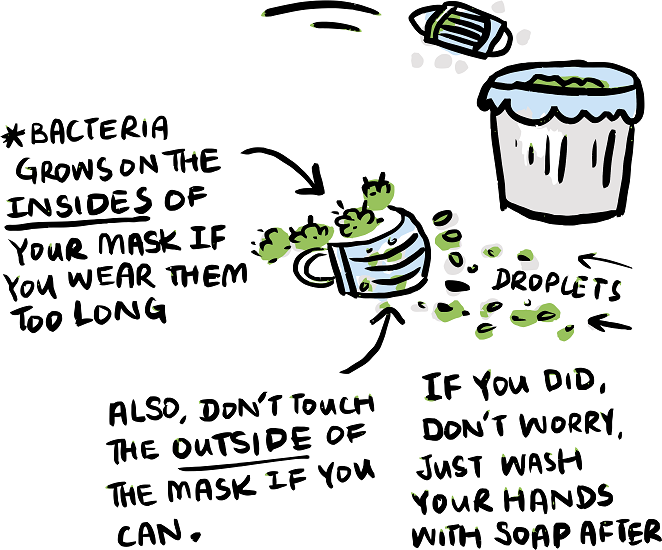 *BACTERIA
GROWS ON THE
INSIDES OF
YOUR MASK IF
YOU WEAR THEM
TOO LONG
DROPLETS
ALSO, DON'T TOUCH
THE OUTSIDE OF
THE MASK IF YOU
CAN.
IF YOU DID,
DON'T WORRY,
JUST WASH
YOUR HANDS
WITH SOAP AFTER